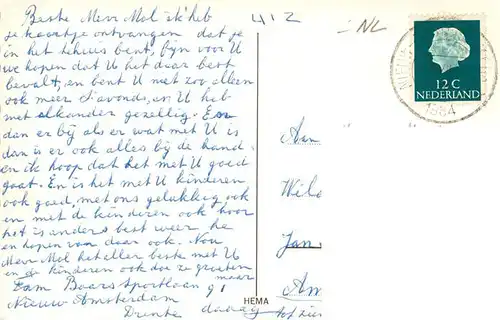 Beste Mevr Mol ik heb
je kaartje ontvangen dat je
in het tehuis bent, fijn voor U
we hopen dat U het daar best
bevalt, en bent U niet zoo alleen
ook meer s'avonds, en U heb
met elkander gezellig. En
dan er bij als er wat met U is
dan is er ook alles bij de hand
en ik hoop dat het met U goed
gaat. En is het met U kinderen
ook goed, met ons gelukkig ook
en met de kinderen ook hoor
het is anders best weer he
en hopen van daar ook. Nou
Mevr Mol het aller beste met U
en de kinderen ook doe ze groeten
maar
Fam Baars Sportlaan 91
Nieuw Amsterdam
Drente daaag
412
NL
12 C
NEDERLAND
1964
Aan
Jan
Am
HEMA